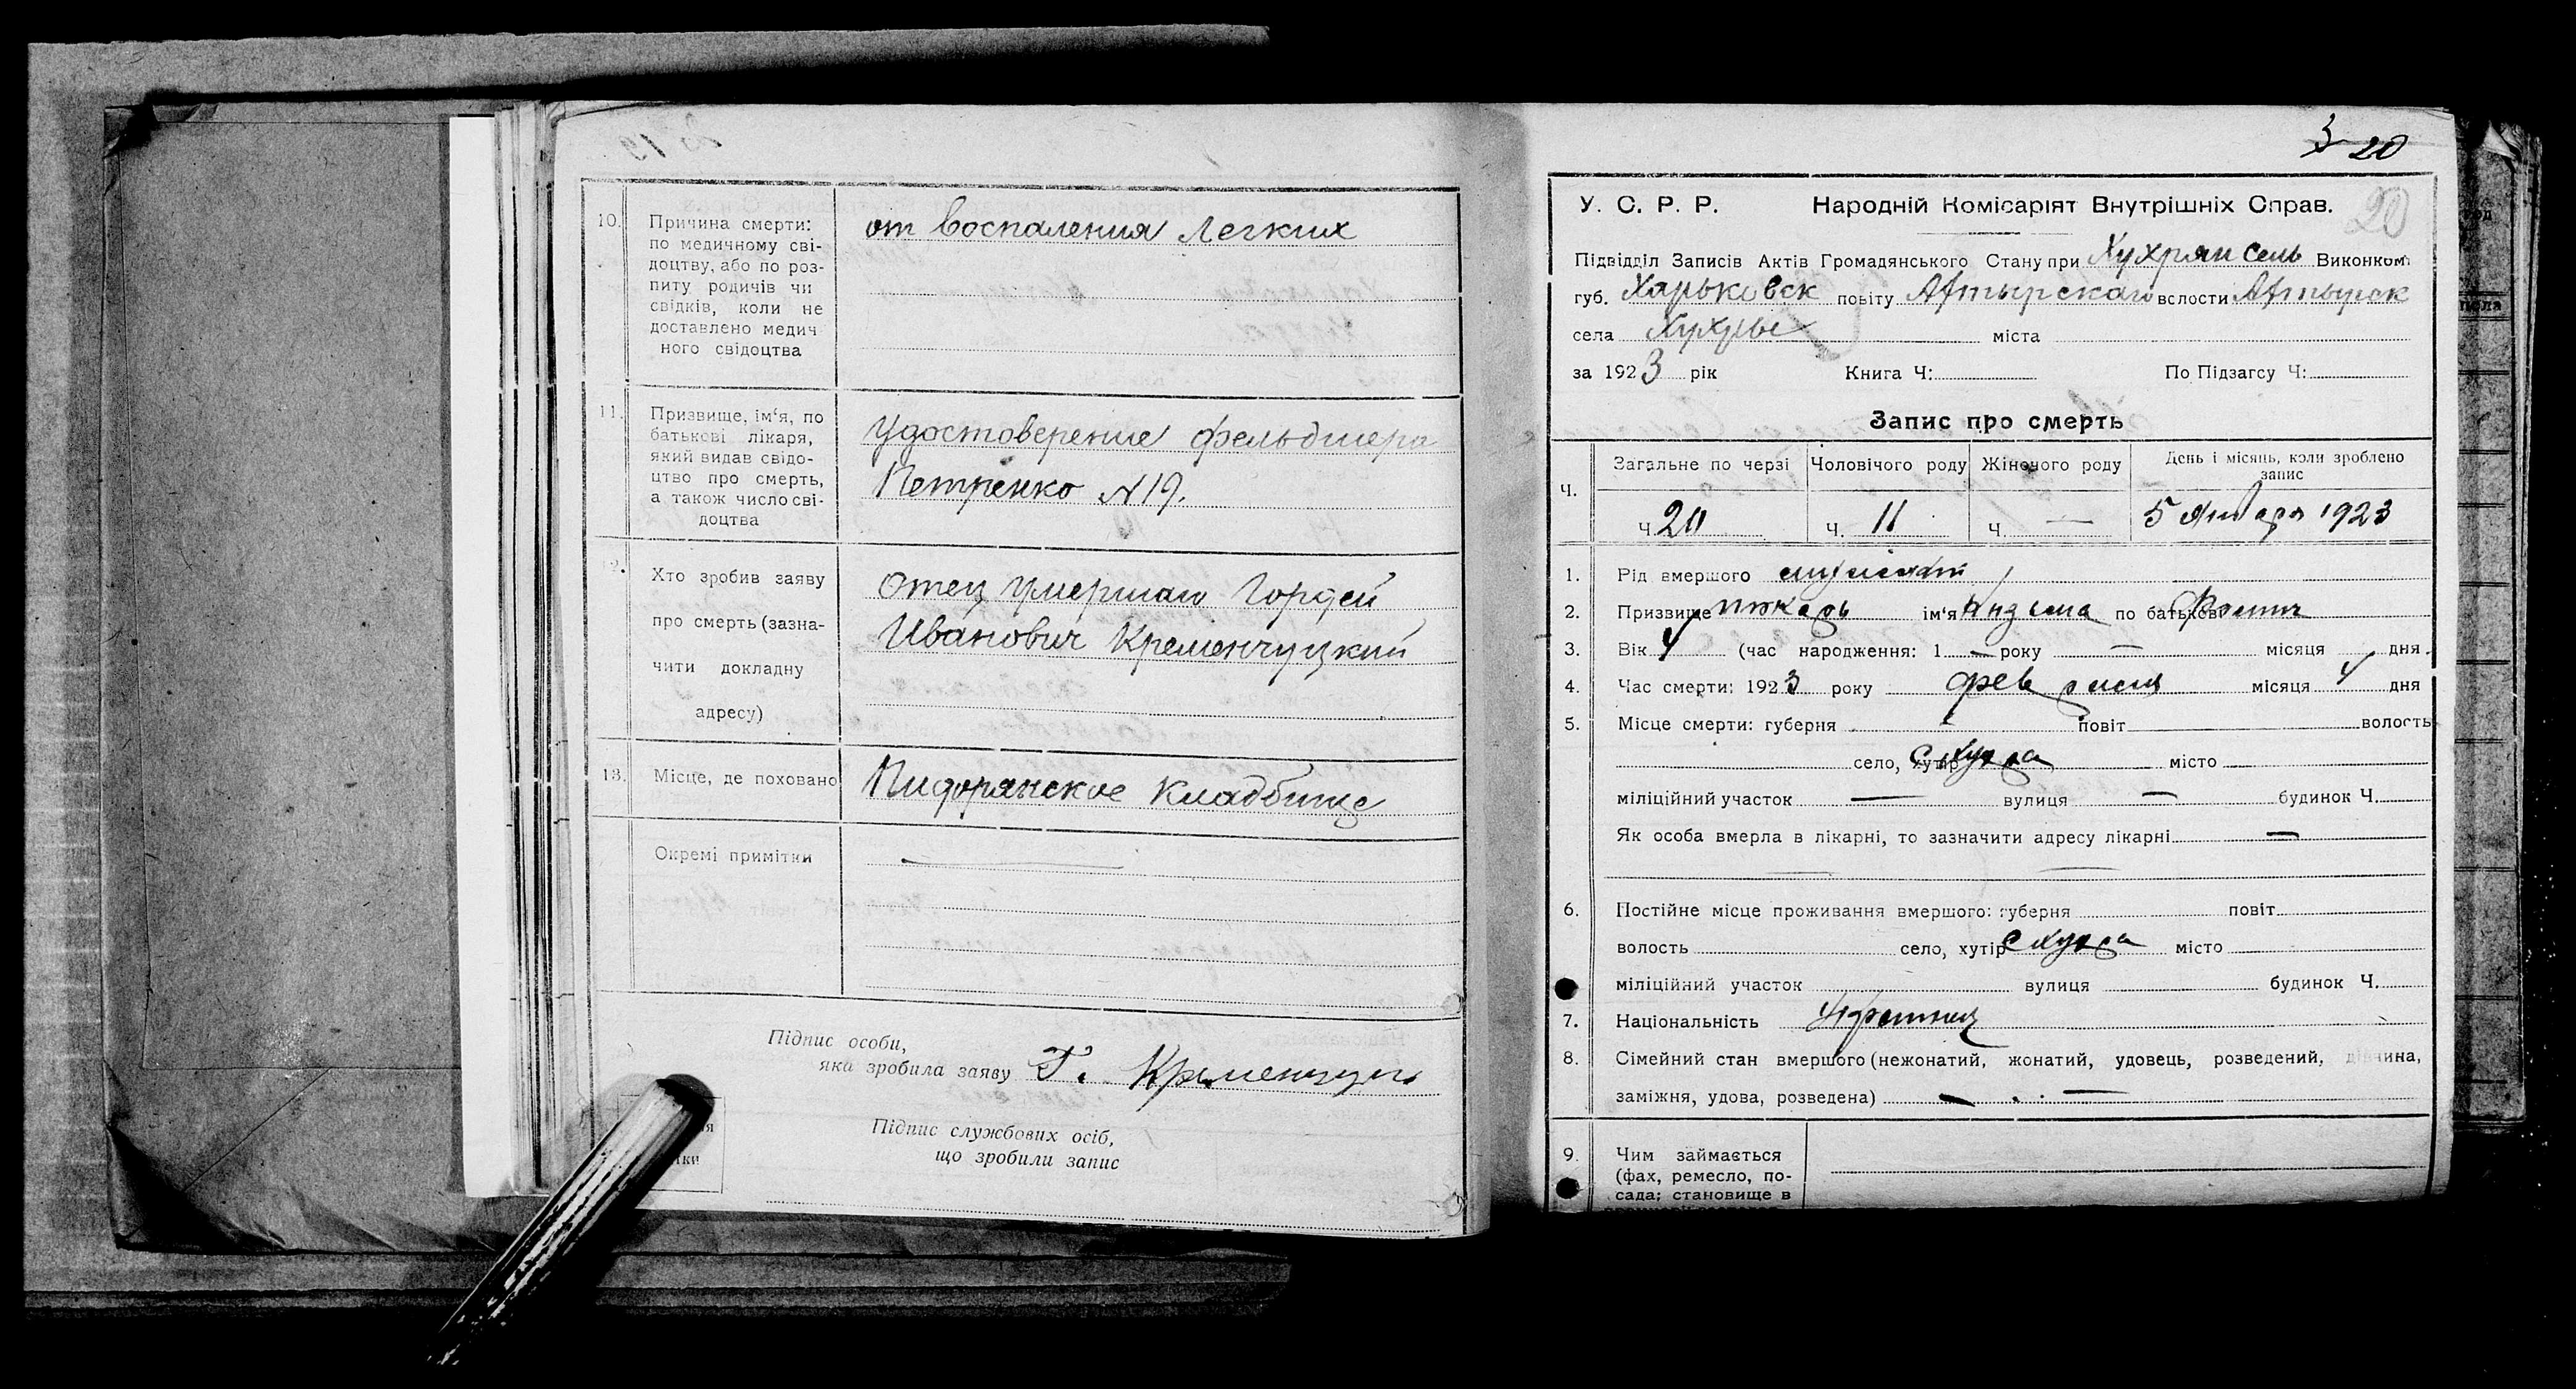 10.
Причина смерти:
по медичному сві-
доцтву, або по роз-
питу родичів чи
свідків, коли не
доставлено медич
ного свідоцтва
от воспаления Легких
11.
Призвище, ім‘я, по
батькові лікаря,
який видав свідо-
цтво про смерть,
а також число сві-
доцтва
Удостоверение фельдшера
Петренко N19.
12.
Хто зробив заяву
про смерть (зазна-
чити докладну
адресу)
Отец умершаго Гордей
Иванович Кременчуцкий
13.
Місце, де поховано
Кладбище
Окремі примітки
Підпис особи,
яка зробила заяву Г.
Підпис службових осіб,
що зробили запис
3 20
20
У. С. Р. Р. Народній Комісаріят Внутрішніх Справ.
Підвідділ Записів Актів Громадянського Стану при Хухрян сель Виконком
губ. Харьковск повіту Ахтырскаго вслости Ахтырск
села Хухры міста
за 1923 рік Книга Ч: По Підзагсу Ч:
Запис про смерть
Ч.
Загальне по черзі Чоловічого роду Жіночого роду День і місяць, коли зроблено запис
Ч. 20 Ч. 11 Ч. — 5 января 1923
1. Рід вмершого
2. Призвище ім‘я по батькові
3. Вік 4 (час народження: 1 — року — місяця дня.
4. Час смерти: 1923 року місяця 4 дня
5. Місце смерти: губерня повіт волость
село, хутір місто
міліційний участок — вулиця — будинок Ч.
Як особа вмерла в лікарні, то зазначити адресу лікарні —
6. Постійне місце проживання вмершого: губерня повіт
волость село, хутір місто
міліційний участок вулиця будинок Ч.
7. Національність
8. Сімейний стан вмершого (нежонатий, жонатий, удовець, розведений, дівчина,
заміжня, удова, розведена) —
9. Чим займається
(фах, ремесло, по-
сада; становище в